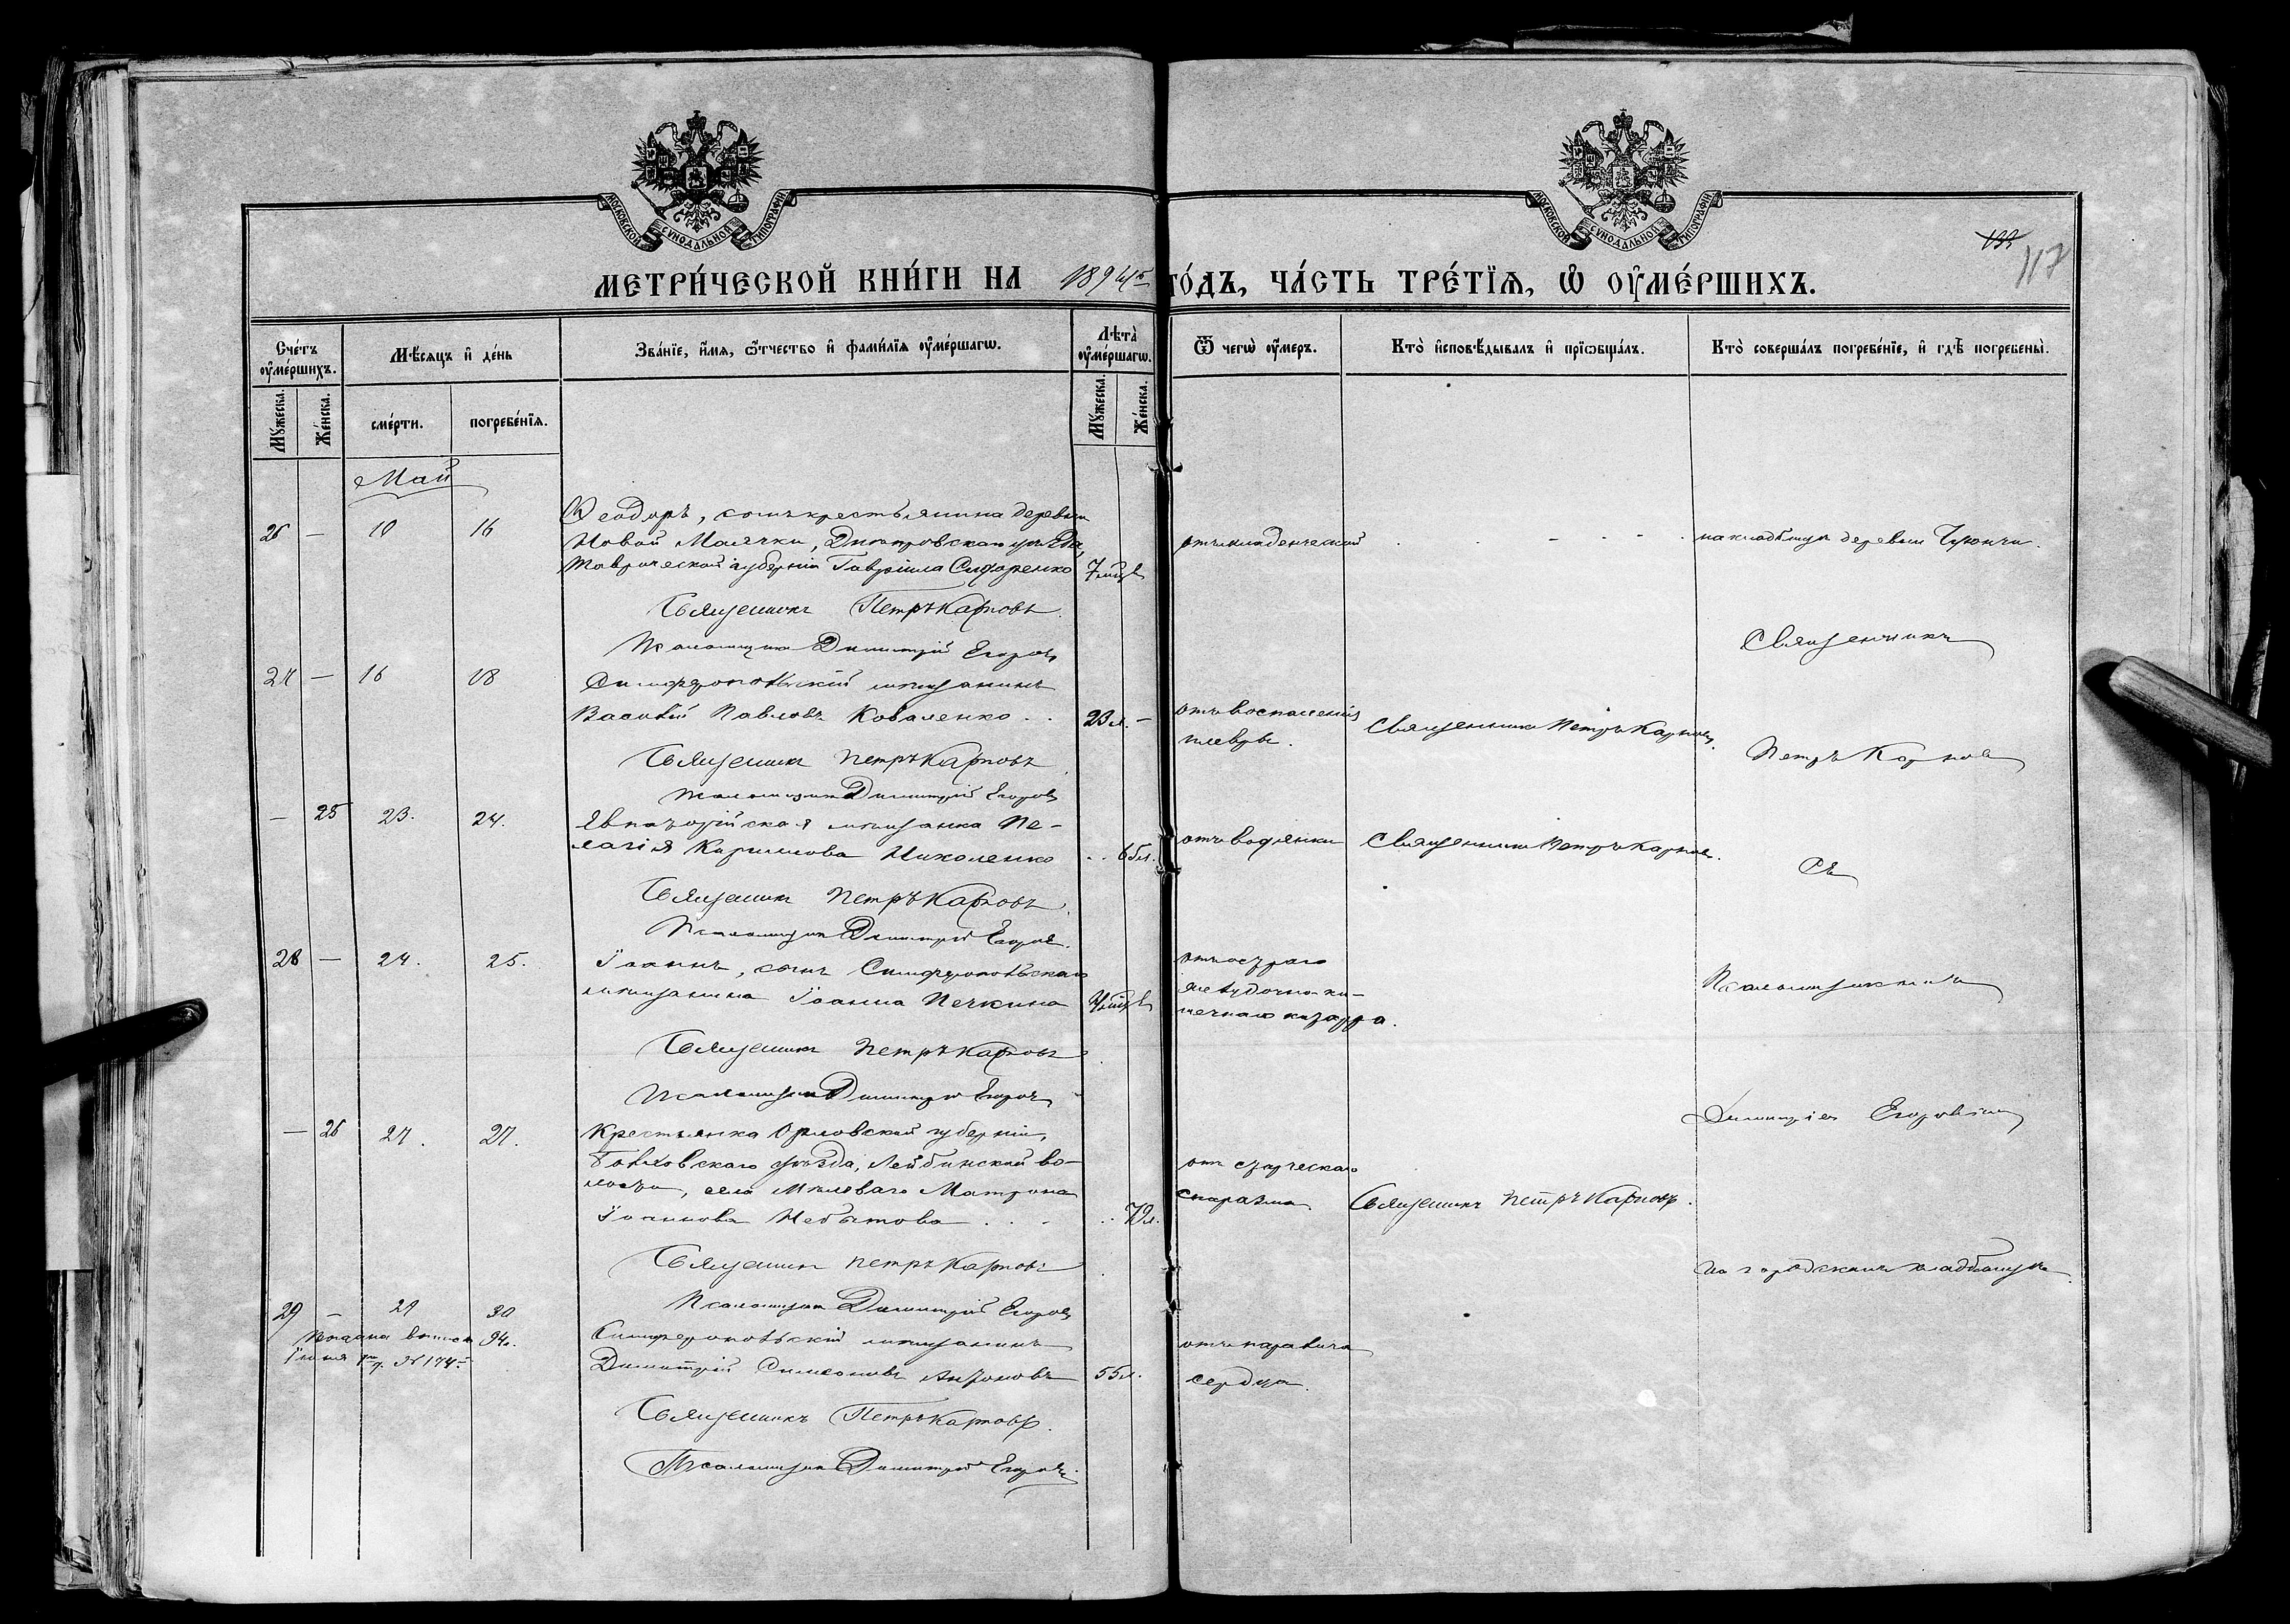 МОСКОВСКОЙ СѴНОДАЛЬНОЙ ТИПОГРАФІИ
МОСКОВСКОЙ СѴНОДАЛЬНОЙ ТИПОГРАФІИ
117
МЕТРИ́ЧЕСКОЙ КНИ́ГИ НА 1894й ГО́ДЪ, ЧА́СТЬ ТРЕ́ТЇѦ, Ѡ҆ ОУ҆МЕ́РШИХЪ.
Сче́тъ оу҆ме́ршихъ.
Мѣ́сяцъ и҆ де́нь
Зва́нїе, и҆́мя, ѻ҆́тчество и҆ фамѝлїя оу҆ме́ршагѡ.
Лѣта̀ оу҆ме́ршагѡ.
Ѿ чегѡ̀ оу҆́меръ.
Кто̀ и҆сповѣ́дывалъ и҆ прїѡбща́лъ.
Кто̀ соверша́лъ погребе́нїе, и҆ гдѣ̀ погребены̀.
Мꙋ́жеска.
Же́нска.
сме́рти.
погребе́нїя.
Мꙋ́жеска.
Же́нска.
Май
26 — 10 16
Ѳеодоръ, сынъ крестьянина деревни
Новой Маячки, Днѣпровскаго уѣзда,
Таврической губерніи Гавріила Сидоренко
7 мѣс.
отъ младенческой
на кладбищѣ деревни
Священникъ Петръ Карповъ
Псаломщикъ Димитрій Егоровъ
27 — 16 18
Симферопольскій мѣщанинъ
Василій Павловъ Коваленко
23 л. —
отъ воспаленія
плевры.
Священникъ Петръ Карповъ.
Священникъ Петръ Карповъ
Псаломщикъ Димитрій Егоровъ
— 25 23. 24.
Евпаторійская мѣщанка Пе-
лагія Кириллова Николенко
65 л.
отъ водянки
Священникъ Петръ Карповъ.
Священникъ Петръ Карповъ
Псаломщикъ Димитрій Егоровъ.
28 — 24. 25.
Іоаннъ, сынъ Симферопольскаго
мѣщанина Іоанна Печкина
отъ остраго
желудочно-ки-
шечнаго катарра.
Священникъ Петръ Карповъ
Псаломщикъ Димитрій Егоровъ
— 26 27. 27.
Крестьянка Орловской губерніи,
Болховскаго уѣзда, во-
лости, села Матрона
Іоаннова Небытова
72 л.
отъ старческаго
маразма
Священникъ Петръ Карповъ.
Священникъ Петръ Карповъ
Псаломщикъ Димитрій Егоровъ
29 — 29 30
94 г.
Іюня
Симферопольскій мѣщанинъ
Димитрій Симеоновъ Антоновъ
55 л.
отъ паралича
сердца.
Священникъ Петръ Карповъ.
Псаломщикъ Димитрій Егоровъ.
Священникъ
Петръ Карповъ
Съ
Псаломщикомъ
Димитріемъ Егоровымъ
на городскомъ кладбищѣ.